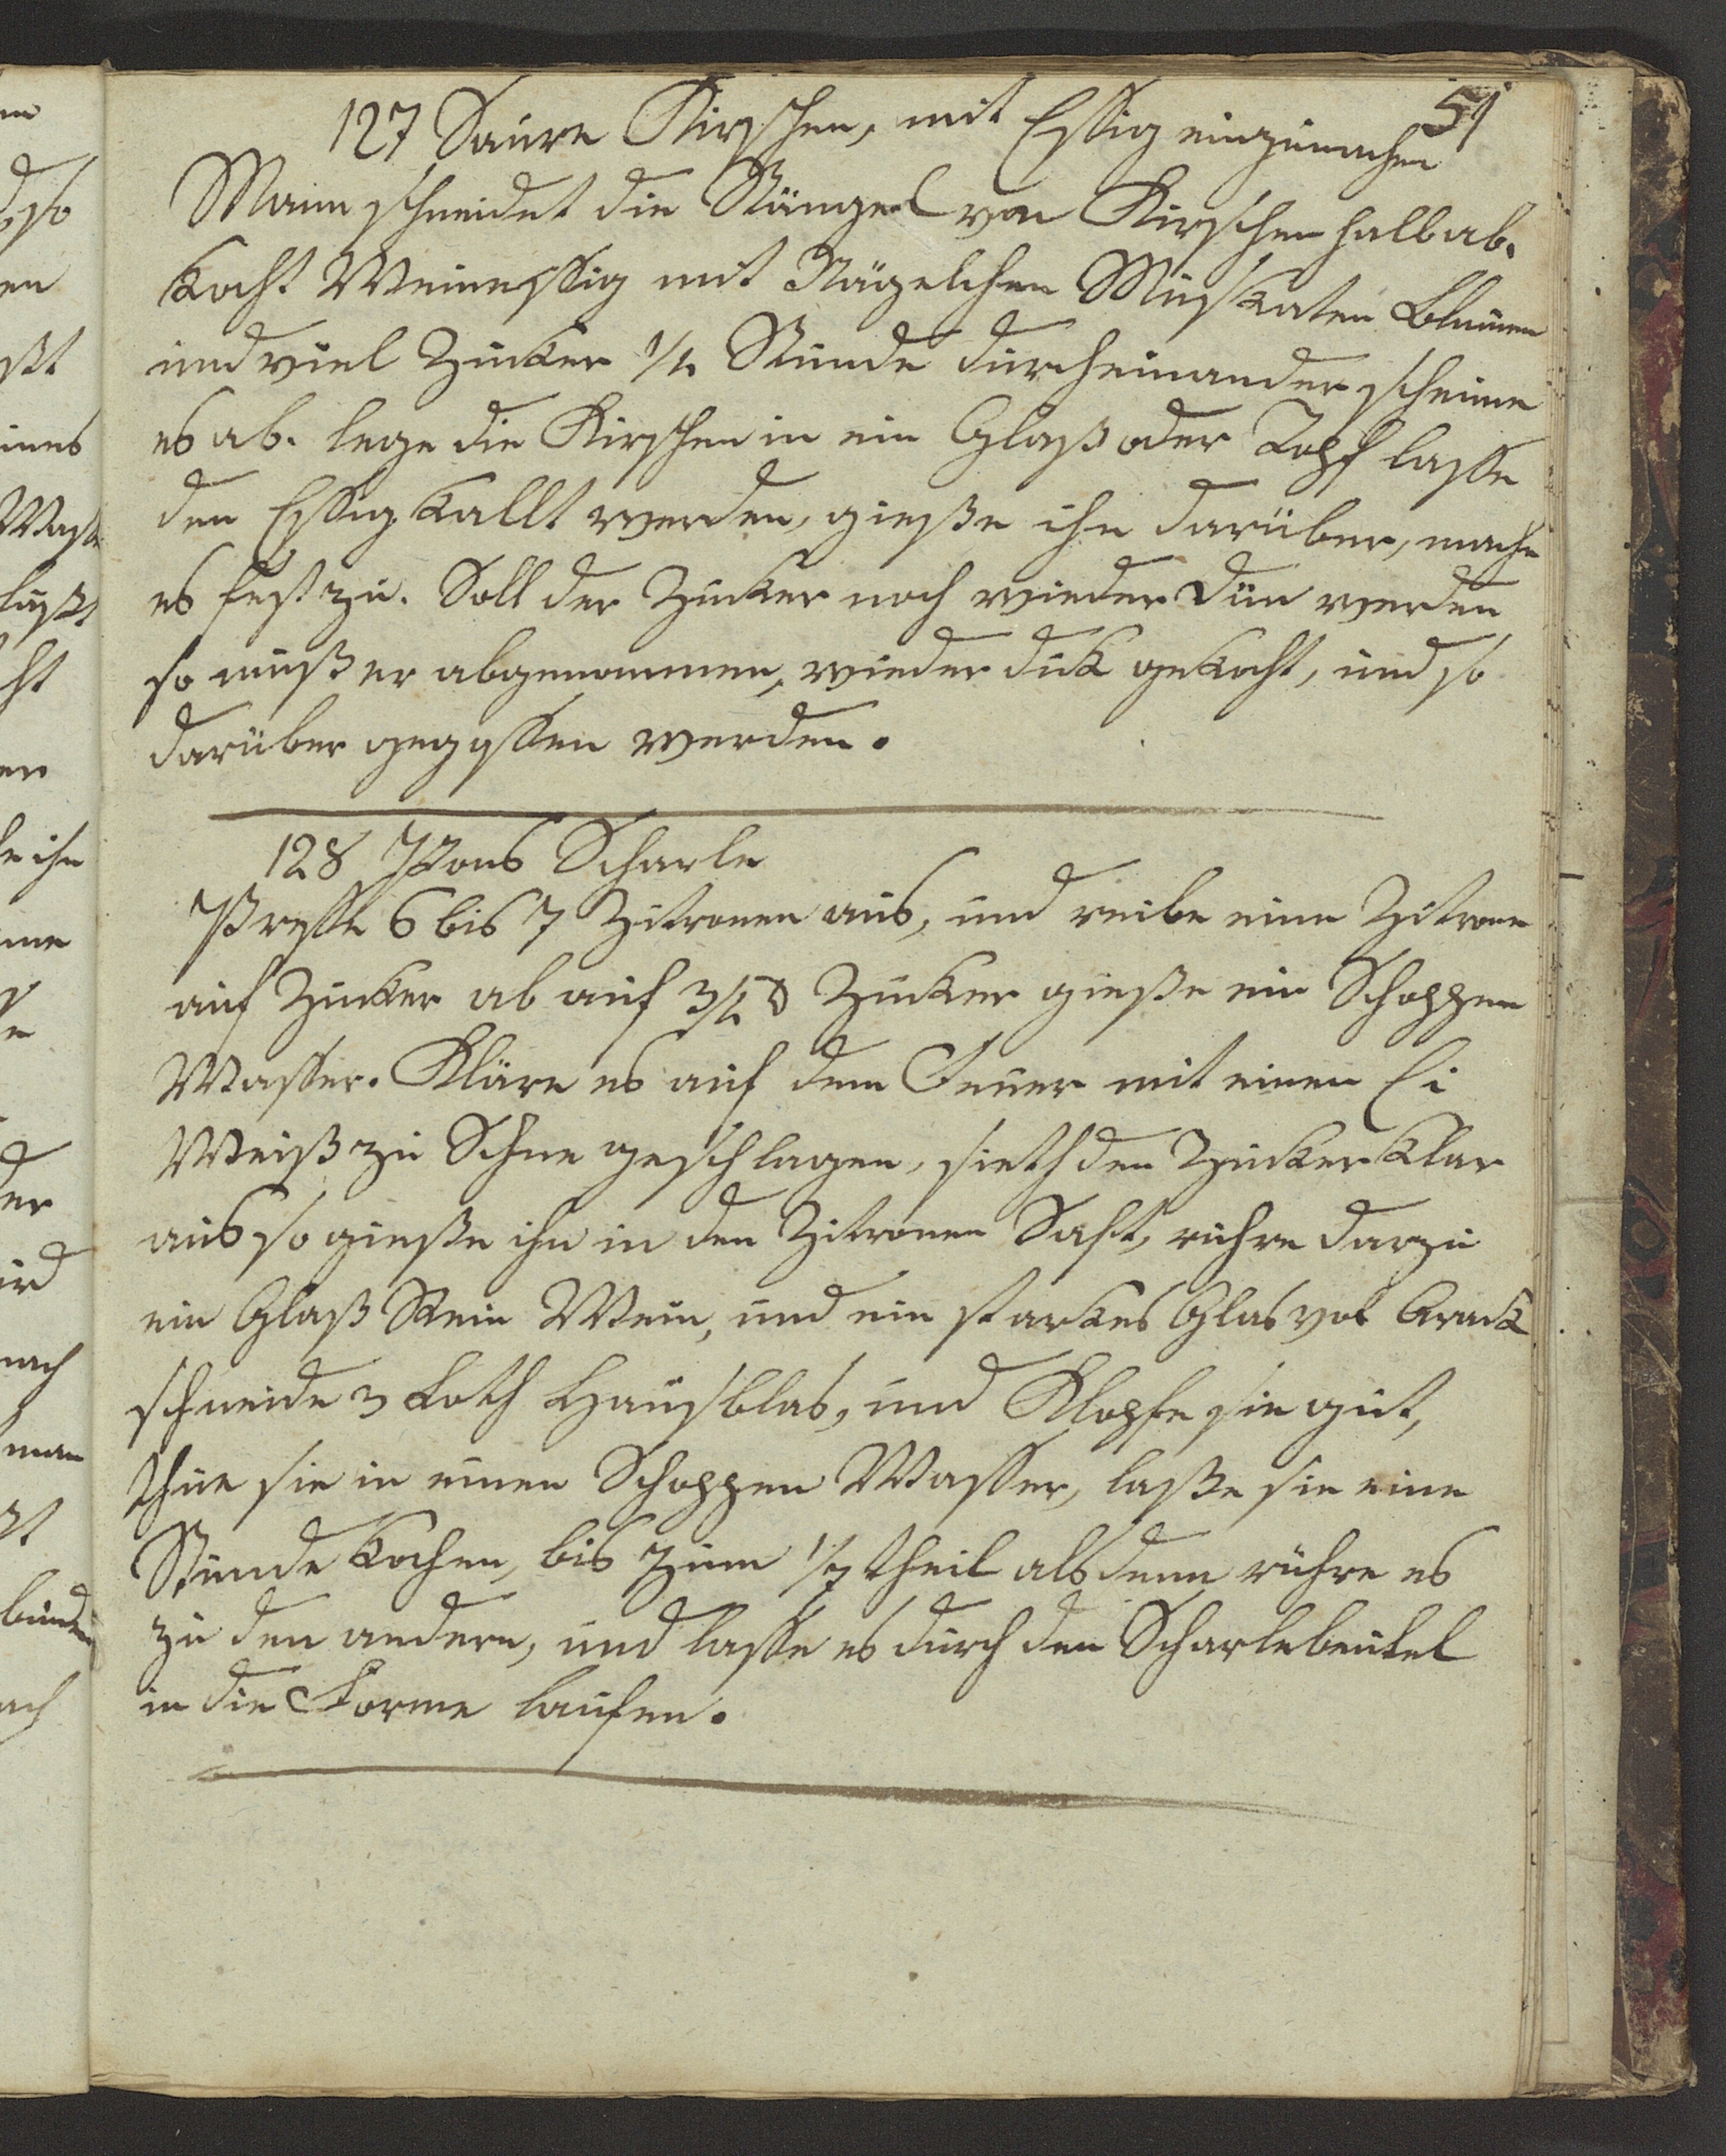 51
127 Saure Kirschen, mit Essig einzumachen
Mann schneidet die Stängel von Kirschen halb ab.
kocht Weinessig mit Nägelchen Muskaten Blumen
und viel Zucker 1/4 Stunde durcheinander scheime
es ab. lege die Kirschen in ein Glaß oder Topf lasse
den Essig kallt werden, gieße ihn darüber, mache
es fest zu. Soll der Zucker noch wieder dün werden
so muß er abgenommen, wieder dick gekocht, und so
darüber gegossen werden.
128 Pons Scharle
Presse 6 bis 7 Zitronen aus, und reibe eine Zitrone
auf Zucker ab auf 3/4 ℔ Zucker gieße ein Schoppen
Wasser. Kläre es auf dem Feuer mit einen Ei
Weiß zu Schne geschlagen, sieth den Zucker klar
aus so gieße ihn in den Zitronen Saft, rühre darzu
ein Glaß Rein Wein, und ein starkes Glas vol Arack
schneide 3 Loth Hausblas, und Klopfe sie gut,
thue sie in einen Schoppen Wasser, laße sie eine
Stunde kochen, bis zum 1/2 theil alsdenn rühre es
zu den andern, und lasse es durch den Scharlebeutel
in die Forme laufen.